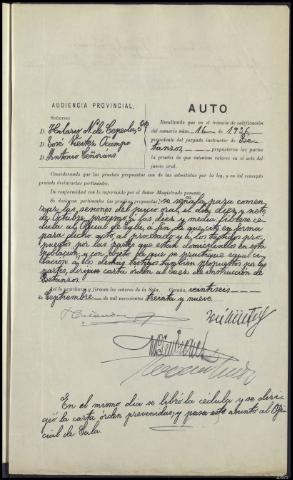 AUDIENCIA PROVINCIAL
Señores:
D. Hilario N. de Cepeda, Pte
D. José Vieites Ocampo
D. Antonio Señoráns
AUTO
Resultando que en el trámite de calificación
del sumario núm. 12 — 1936
procedente del juzgado instructor de Be-
tanzos — propusieron las partes
la prueba de que intentan valerse en el acto del
juicio oral.
Considerando que las pruebas propuestas son de las admitidas por la ley, y en tal concepto
procede declararlas pertinentes.
De conformidad con lo informado por el Señor Magistrado ponente.
Se declaran pertinentes las pruebas propuestas; se señala para comen-
zar las sesiones del juicio oral, el día diez y siete
de Octubre próximo a las diez y media; líbrese cé-
dula al Oficial de Sala a fin de que cite en forma
para dicho acto al procesado y a los testigos pro-
puestos por las partes que estén domiciliados en esta
población; y con objeto de que se practique igual ci-
tación a los demás testigos también propuestos por las
partes, diríjase carta orden al Juez de instrucción de
Betanzos.
Así lo acordaron y firman los señores de la Sala. Coruña, veintiseis
de Septiembre de mil novecientos treinta y nueve.
En el mismo día se libró la cédula y se diri-
gió la carta orden prevenidas; y pasa este asunto al Ofi-
cial de Sala.